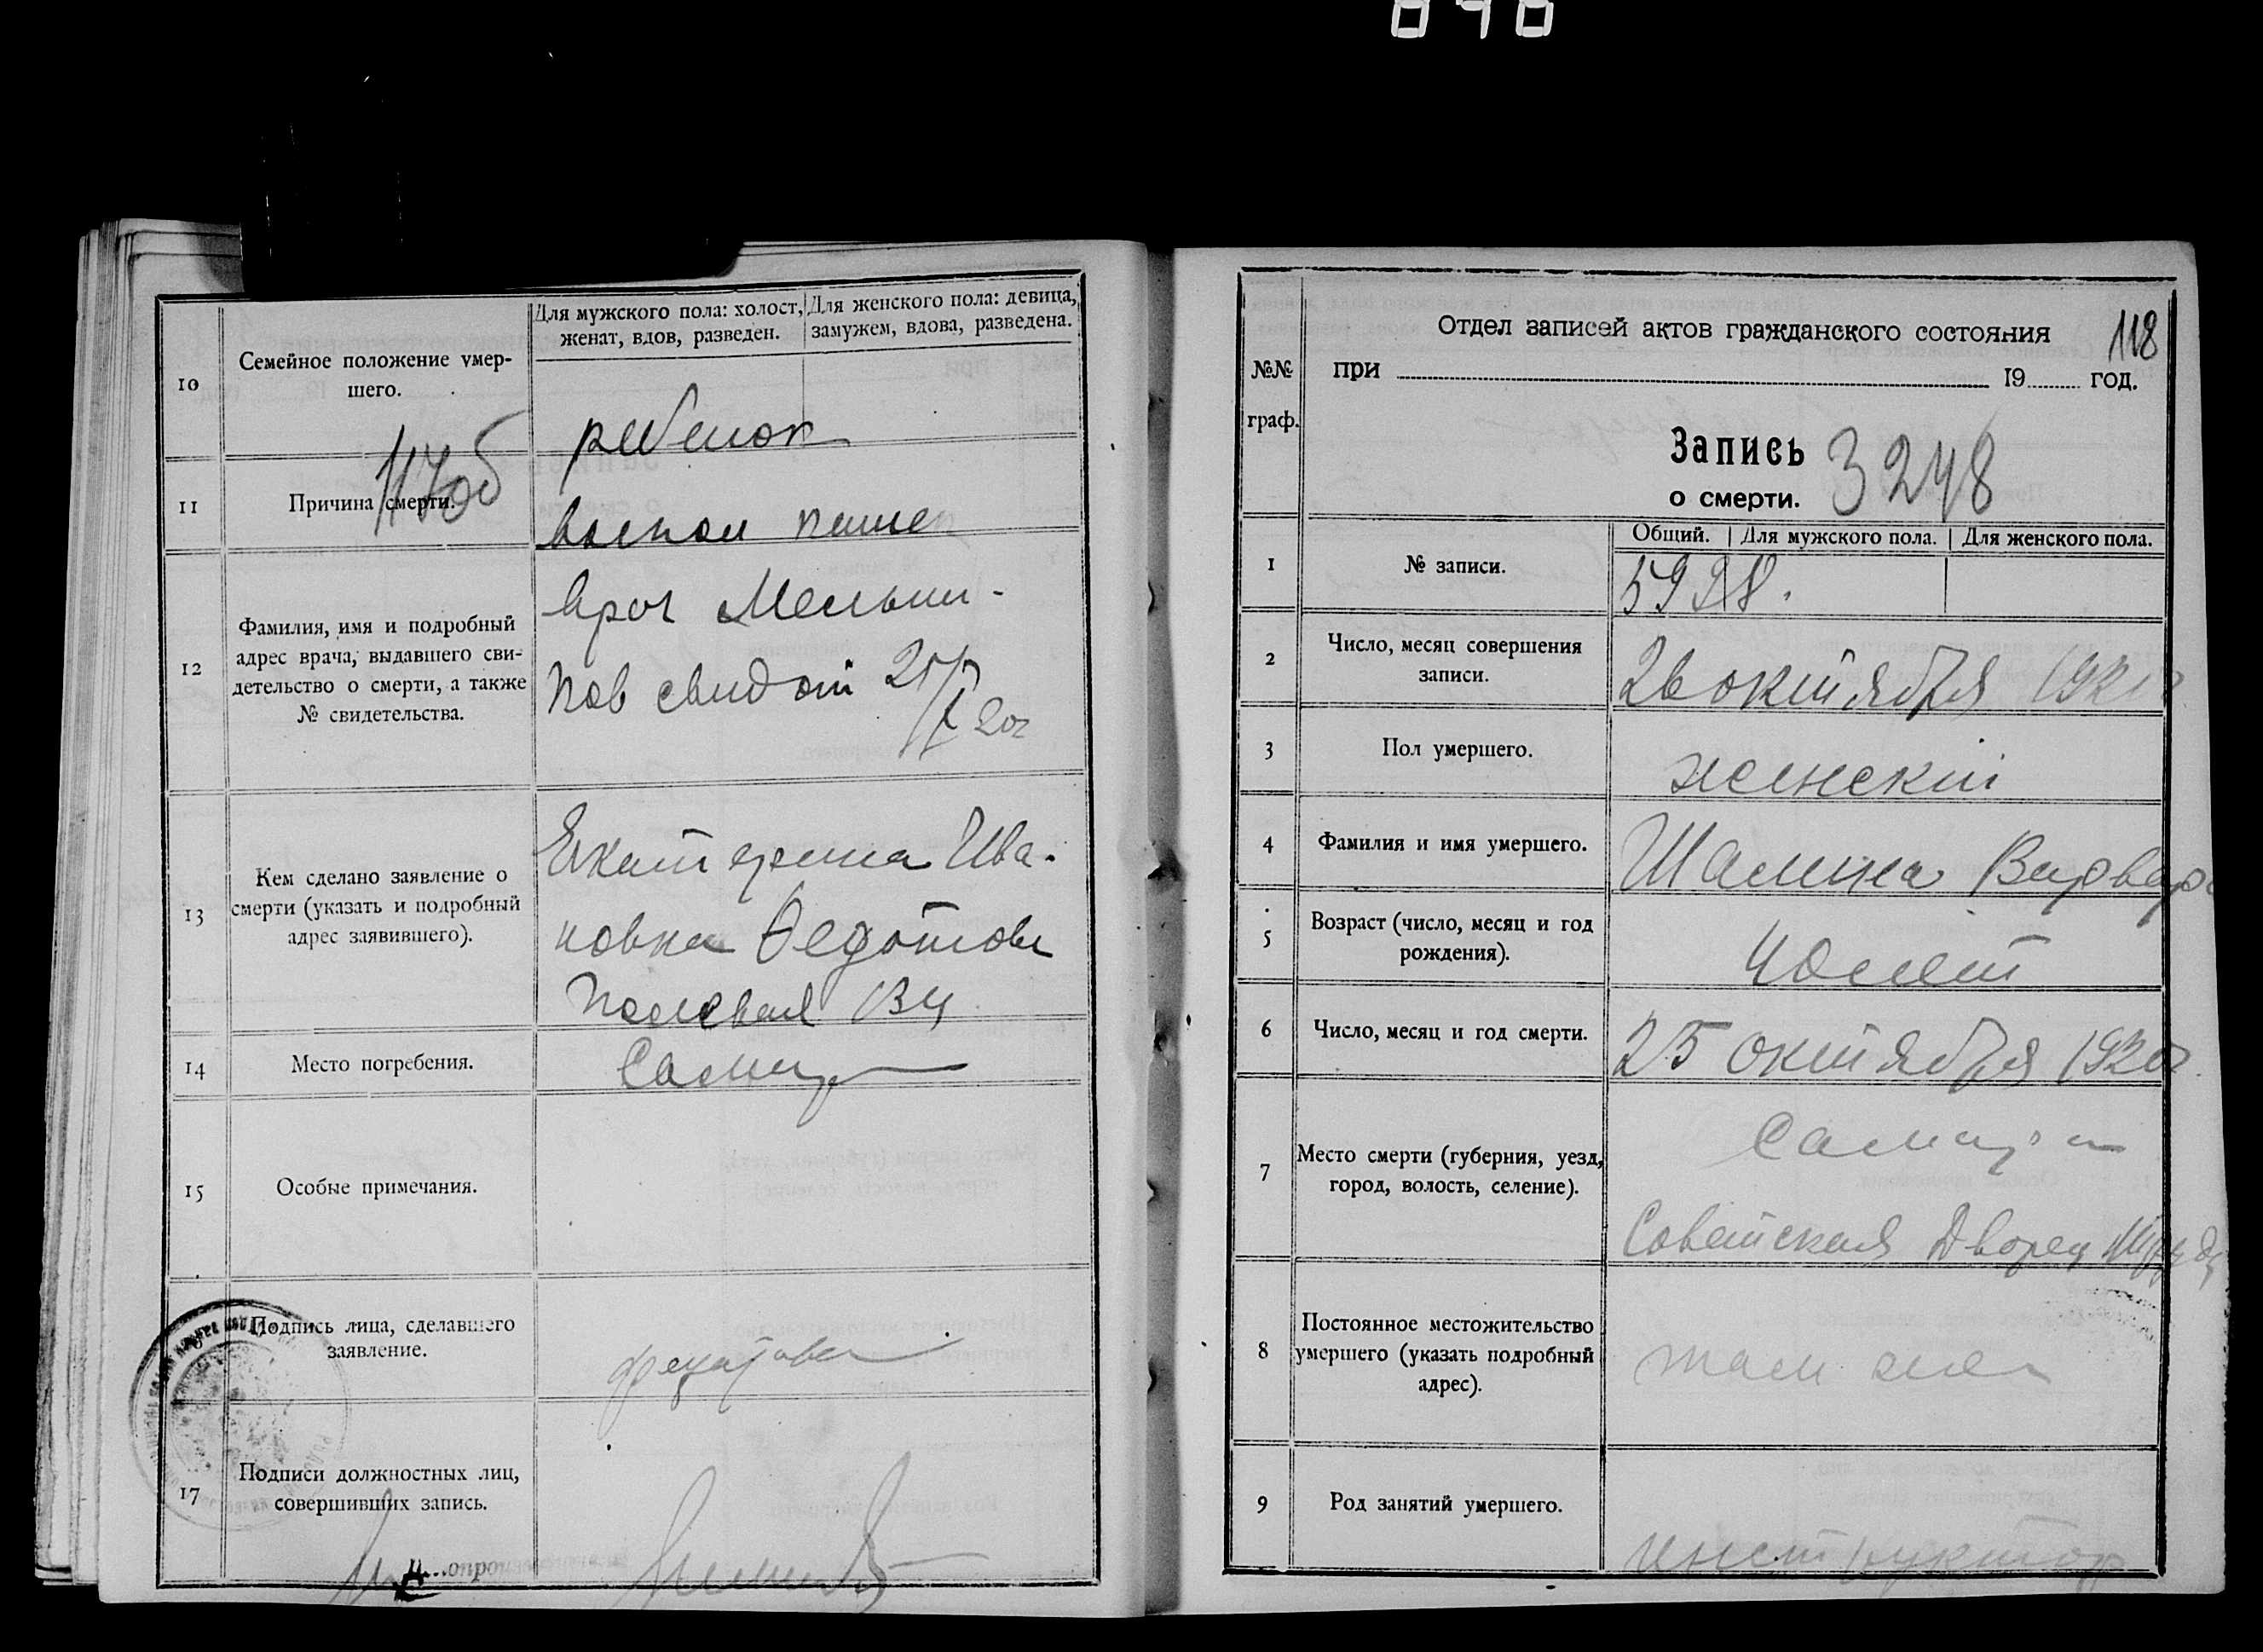 10
Семейное положение умер-
шего.
Для мужского пола: холост,
женат, вдов, разведен.
Для женского пола: девица,
замужем, вдова, разведена.
ребенок
117об
11
Причина смерти.
воспол кишек
12
Фамилия, имя и подробный
адрес врача, выдавшего сви-
детельство о смерти, а также
№ свидетельства.
врач Мельни-
ков свид от 25/X 20г
13
Кем сделано заявление о
смерти (указать и подробный
адрес заявившего).
Екатерина Ива-
новна Федотова
Полевая
14
Место погребения.
Самара
15
Особые примечания.
Подпись лица, сделавшего
заявление.
Федотова
17
Подписи должностных лиц,
совершивших запись.
118
Отдел записей актов гражданского состояния
при 19 год.
№№
граф.
Запись
о смерти.
3248
Общий.
Для мужского пола.
Для женского пола.
1
№ записи.
5998.
2
Число, месяц совершения
записи.
26 октября 1920
3
Пол умершего.
женский
4
Фамилия и имя умершего.
Шалина Варвара
5
Возраст (число, месяц и год
рождения).
40 лет
6
Число, месяц и год смерти.
25 октября 1920г.
7
Место смерти (губерния, уезд,
город, волость, селение).
Самара
Советская Дворец труда
8
Постоянное местожительство
умершего (указать подробный
адрес).
там же
9
Род занятий умершего.
инструктор